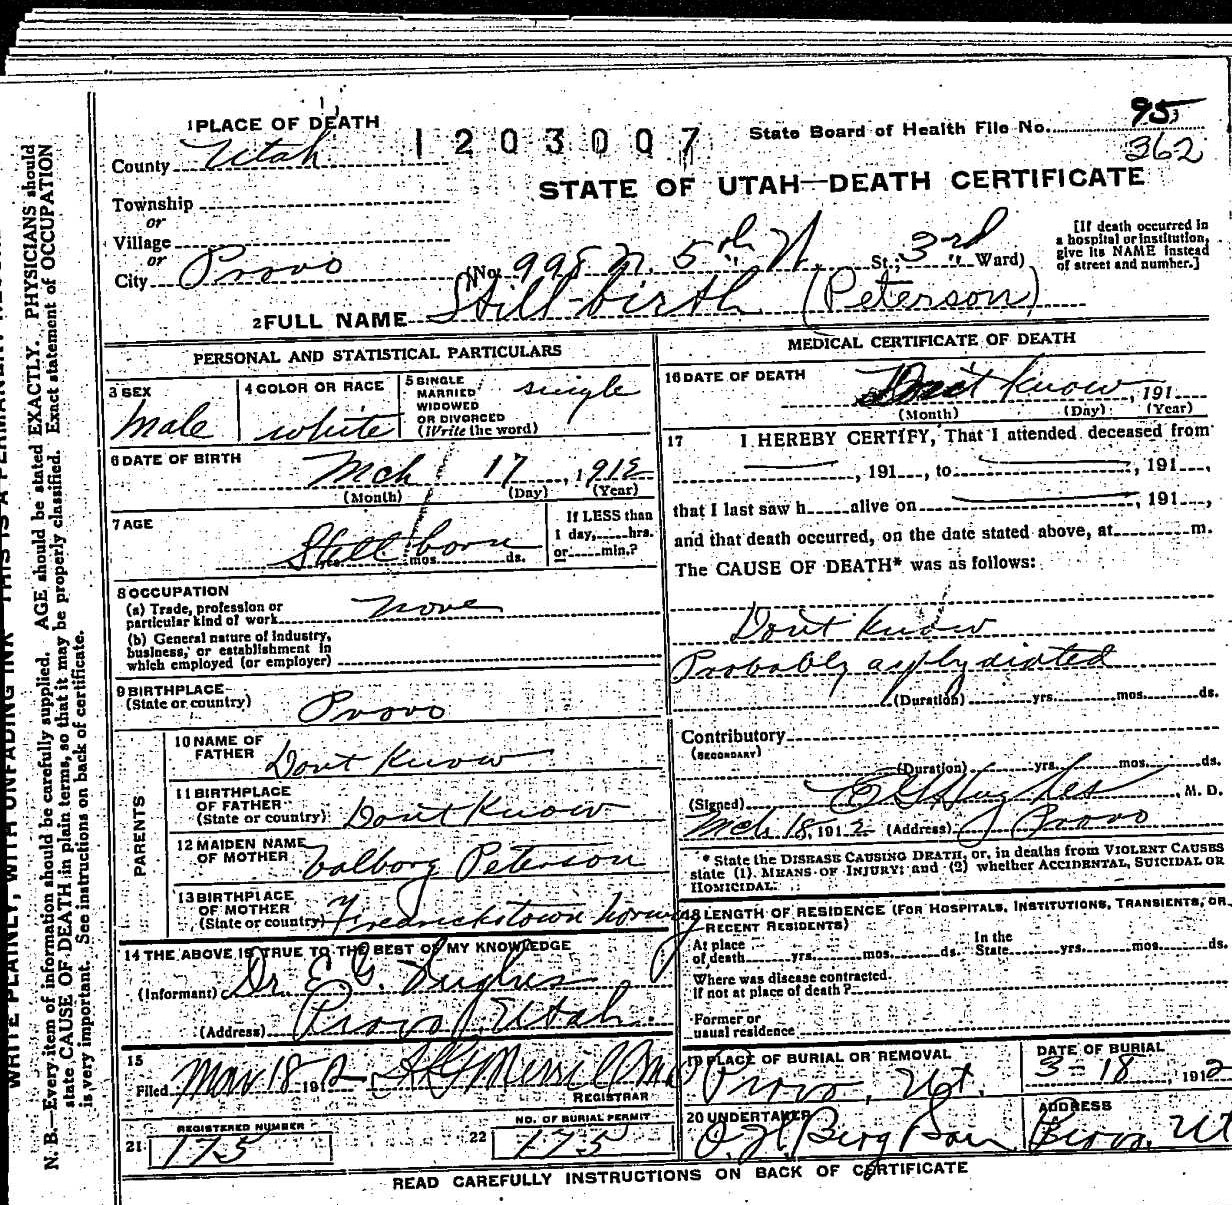 1 PLACE OF DEATH
1203007
State Board of Health File No. 95
362
County Utah
STATE OF UTAH—DEATH CERTIFICATE
Township
or
Village
or
City Provo (No. 998 N. 5th W. St.; 3rd Ward)
[If death occurred in
a hospital or institution,
give its NAME instead
of street and number.]
2 FULL NAME Still-birth (Peterson)
PERSONAL AND STATISTICAL PARTICULARS
3 SEX
Male
4 COLOR OR RACE
white
5 SINGLE
MARRIED
WIDOWED
OR DIVORCED
(Write the word)
single
6 DATE OF BIRTH
Mch 17, 1912
(Month) (Day) (Year)
7 AGE
Still born
mos. ds.
If LESS than
1 day, hrs.
or min.?
8 OCCUPATION
(a) Trade, profession or
particular kind of work none
(b) General nature of industry,
business, or establishment in
which employed (or employer)
9 BIRTHPLACE
(State or country) Provo
PARENTS
10 NAME OF
FATHER Dont Know
11 BIRTHPLACE
OF FATHER
(State or country) Dont Know
12 MAIDEN NAME
OF MOTHER Valborg Peterson
13 BIRTHPLACE
OF MOTHER
(State or country) Fredrickstown Norway
14 THE ABOVE IS TRUE TO THE BEST OF MY KNOWLEDGE
(Informant) Dr. E G. Hughes
(Address) Provo, Utah.
15
Filed Mar 18 1912 Merrill
REGISTRAR
21 REGISTERED NUMBER
175
22 NO. OF BURIAL PERMIT
175
MEDICAL CERTIFICATE OF DEATH
16 DATE OF DEATH
Don't Know, 191
(Month) (Day) (Year)
17 I HEREBY CERTIFY, That I attended deceased from
, 191 , to , 191 ,
that I last saw h alive on , 191 ,
and that death occurred, on the date stated above, at m.
The CAUSE OF DEATH* was as follows:
Dont Know
Probably asphydiated
(Duration) yrs. mos. ds.
Contributory
(SECONDARY)
(Duration) yrs. mos. ds.
(Signed) E G Hughes, M. D.
Mch 18, 1912 (Address) Provo
* State the DISEASE CAUSING DEATH, or, in deaths from VIOLENT CAUSES
state (1) MEANS OF INJURY; and (2) whether ACCIDENTAL, SUICIDAL OR
HOMICIDAL.
18 LENGTH OF RESIDENCE (FOR HOSPITALS, INSTITUTIONS, TRANSIENTS, OR
RECENT RESIDENTS)
At place
of death yrs. mos. ds.
In the
State yrs. mos. ds.
Where was disease contracted.
If not at place of death?
Former or
usual residence
19 PLACE OF BURIAL OR REMOVAL
Provo, Ut.
DATE OF BURIAL
3-18, 1912
20 UNDERTAKER
O. H. Berg
ADDRESS
Provo, Ut
READ CAREFULLY INSTRUCTIONS ON BACK OF CERTIFICATE
WRITE PLAINLY, WITH UNFADING INK—THIS IS A PERMANENT
N. B.—Every item of information should be carefully supplied. AGE should be stated EXACTLY. PHYSICIANS should
state CAUSE OF DEATH in plain terms, so that it may be properly classified. Exact statement of OCCUPATION
is very important. See instructions on back of certificate.